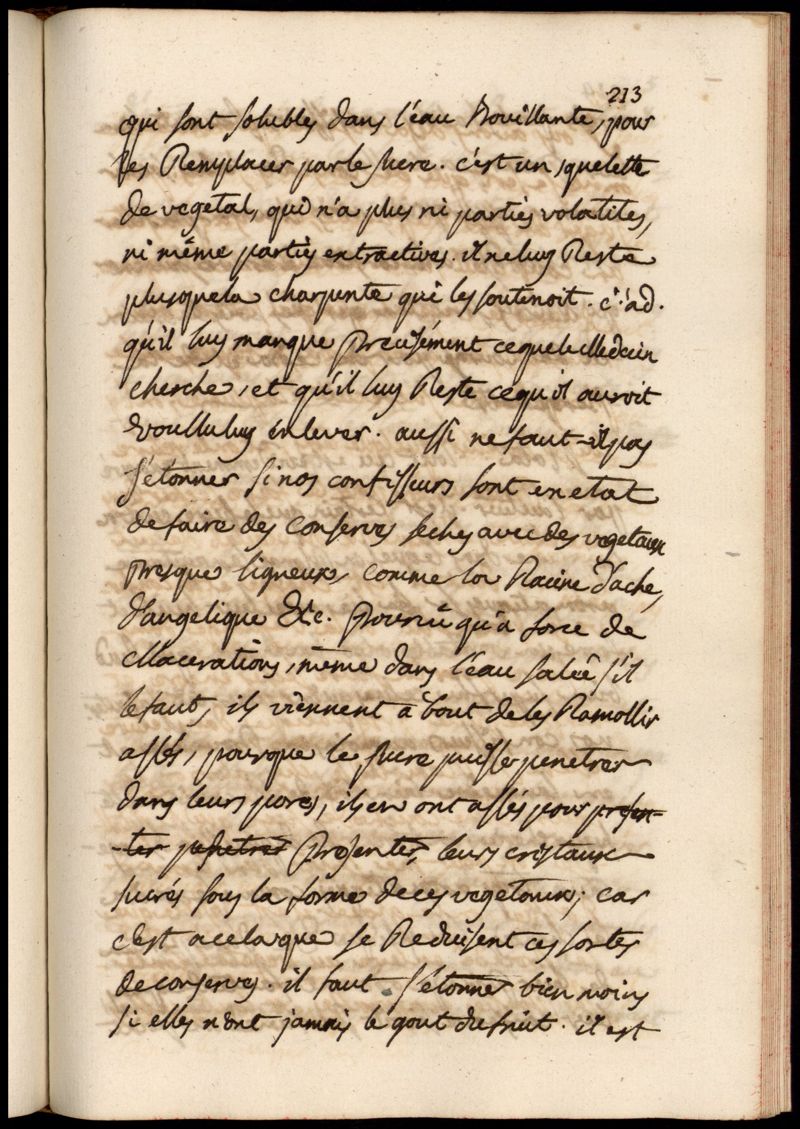 213
qui sont solubles dans l'eau Bouillante, pour
les Remplacer par le sucre. c'est un squelette
de vegetal, qui n'a plus ni parties volatiles,
ni même parties extractives. il ne luy Reste
plus que la charpente qui les soutenoit. c.'ad.
qu'il luy manque precisément ce que le Medecin
cherche, et qu'il luy Reste ce qu'il auroit
voullu luy énlever. aussi ne faut-il pas
s'étonner si nos confisseurs sont en etat
de faire des conserves seches avec des vegetaux
presque ligneux, comme la Racine d'ache,
d'angelique &c. pourvû qu'a force de
Macerations, même dans l'eau salée s'il
le faut, ils viennent à bout de les Ramollir
assés, pour que le sucre puisse penetrer
dans leurs pores, ils en ont assés pour presen-
-ter penetrer presenter leurs cristaux
sucrés sous la forme de ces vegetaux; car
c'est a cela que se Reduisent ces sortes
de conserves. il faut s'étonner bien moins
si elles n'ont jamais le gout du fruit. il est